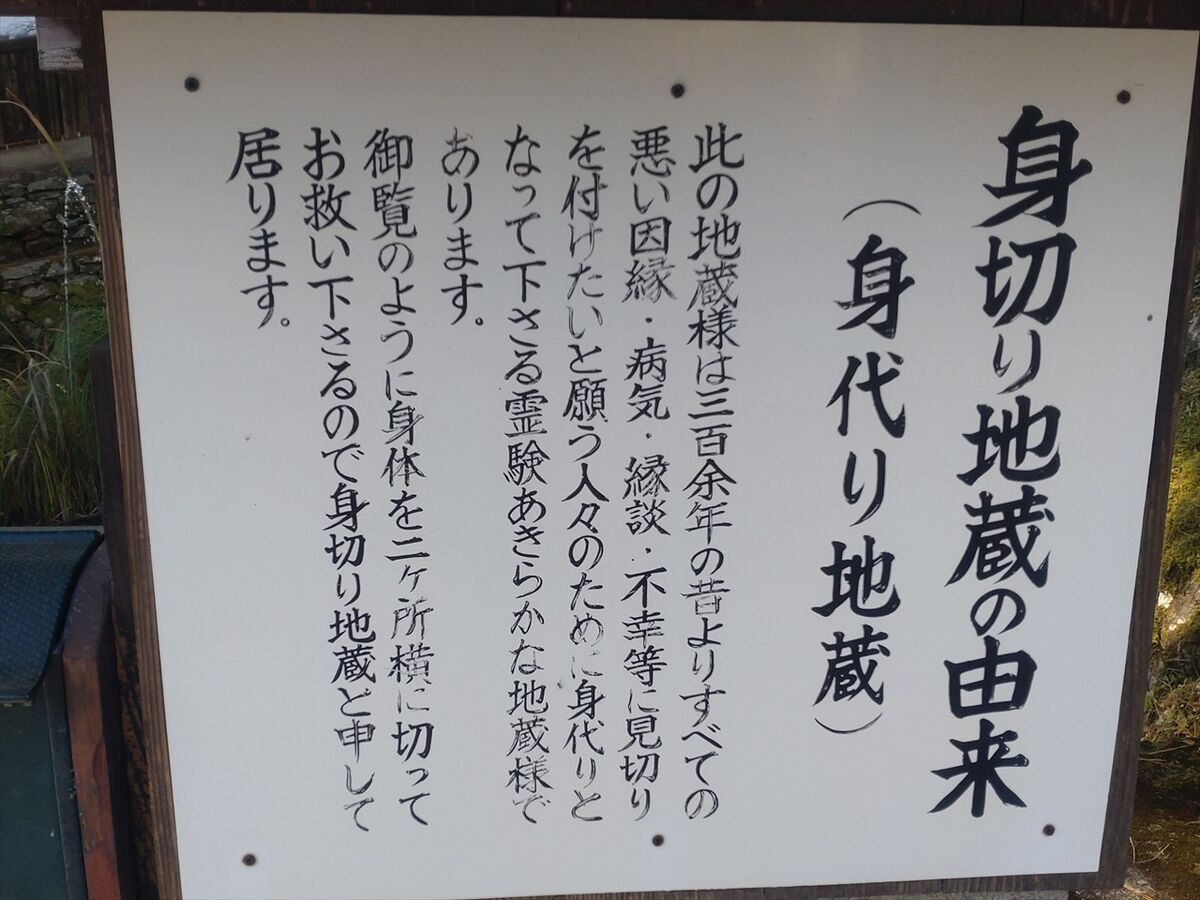 身切り地蔵の由来
（身代り地蔵）
此の地蔵様は三百余年の昔よりすべての
悪い因縁・病気・縁談・不幸等に見切り
を付けたいと願う人々のために身代りと
なって下さる霊験あきらかな地蔵様で
あります。
御覧のように身体を二ヶ所横に切って
お救い下さるので身切り地蔵と申して
居ります。